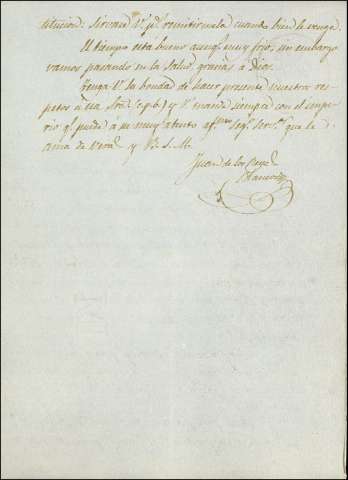 titucion. Sirvase V. pr. remitirmela cuando bien le venga.
El tiempo esta bueno aunqe. muy frio, sin embargo
vamos pasando en la Salud, gracias a Dios.
Tenga V. la bondad de hacer presente nuestros res-
petos á esa Sra. (c.p.b.) y V. mande siempre con el impe-
rio qe. puede á su muy atento afmo. Segº. Servr. que le
ama de veras y B. S. M.
Juan de los